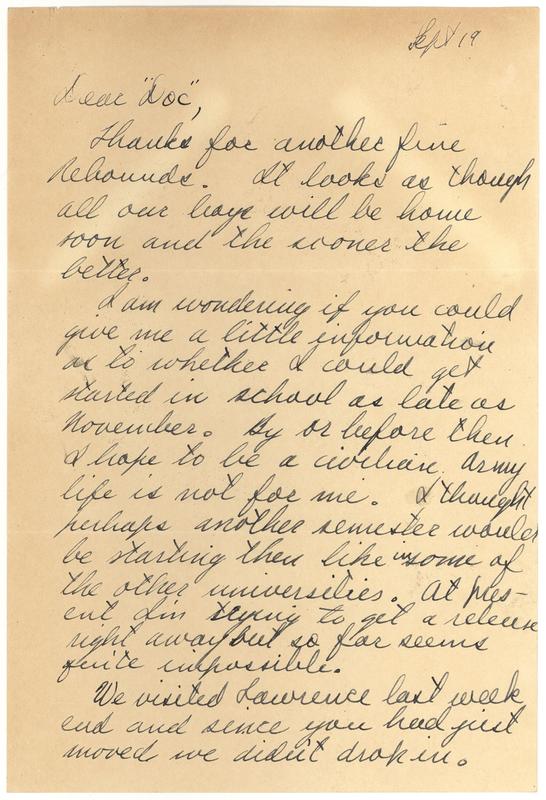 Sept 19
Dear "Doc",
Thanks for another fine
Rebounds. It looks as though
all our boys will be home
soon and the sooner the
better.
I am wondering if you could
give me a little information
as to whether I could get
started in school as late as
November. By or before then
I hope to be a civilian. Army
life is not for me. I thought
perhaps another semester would
be starting then like in some of
the other universities. At pres-
ent I'm trying to get a release
right away but so far seems
quite impossible.
We visited Lawrence last week
end and since you had just
moved we didn't drop in.